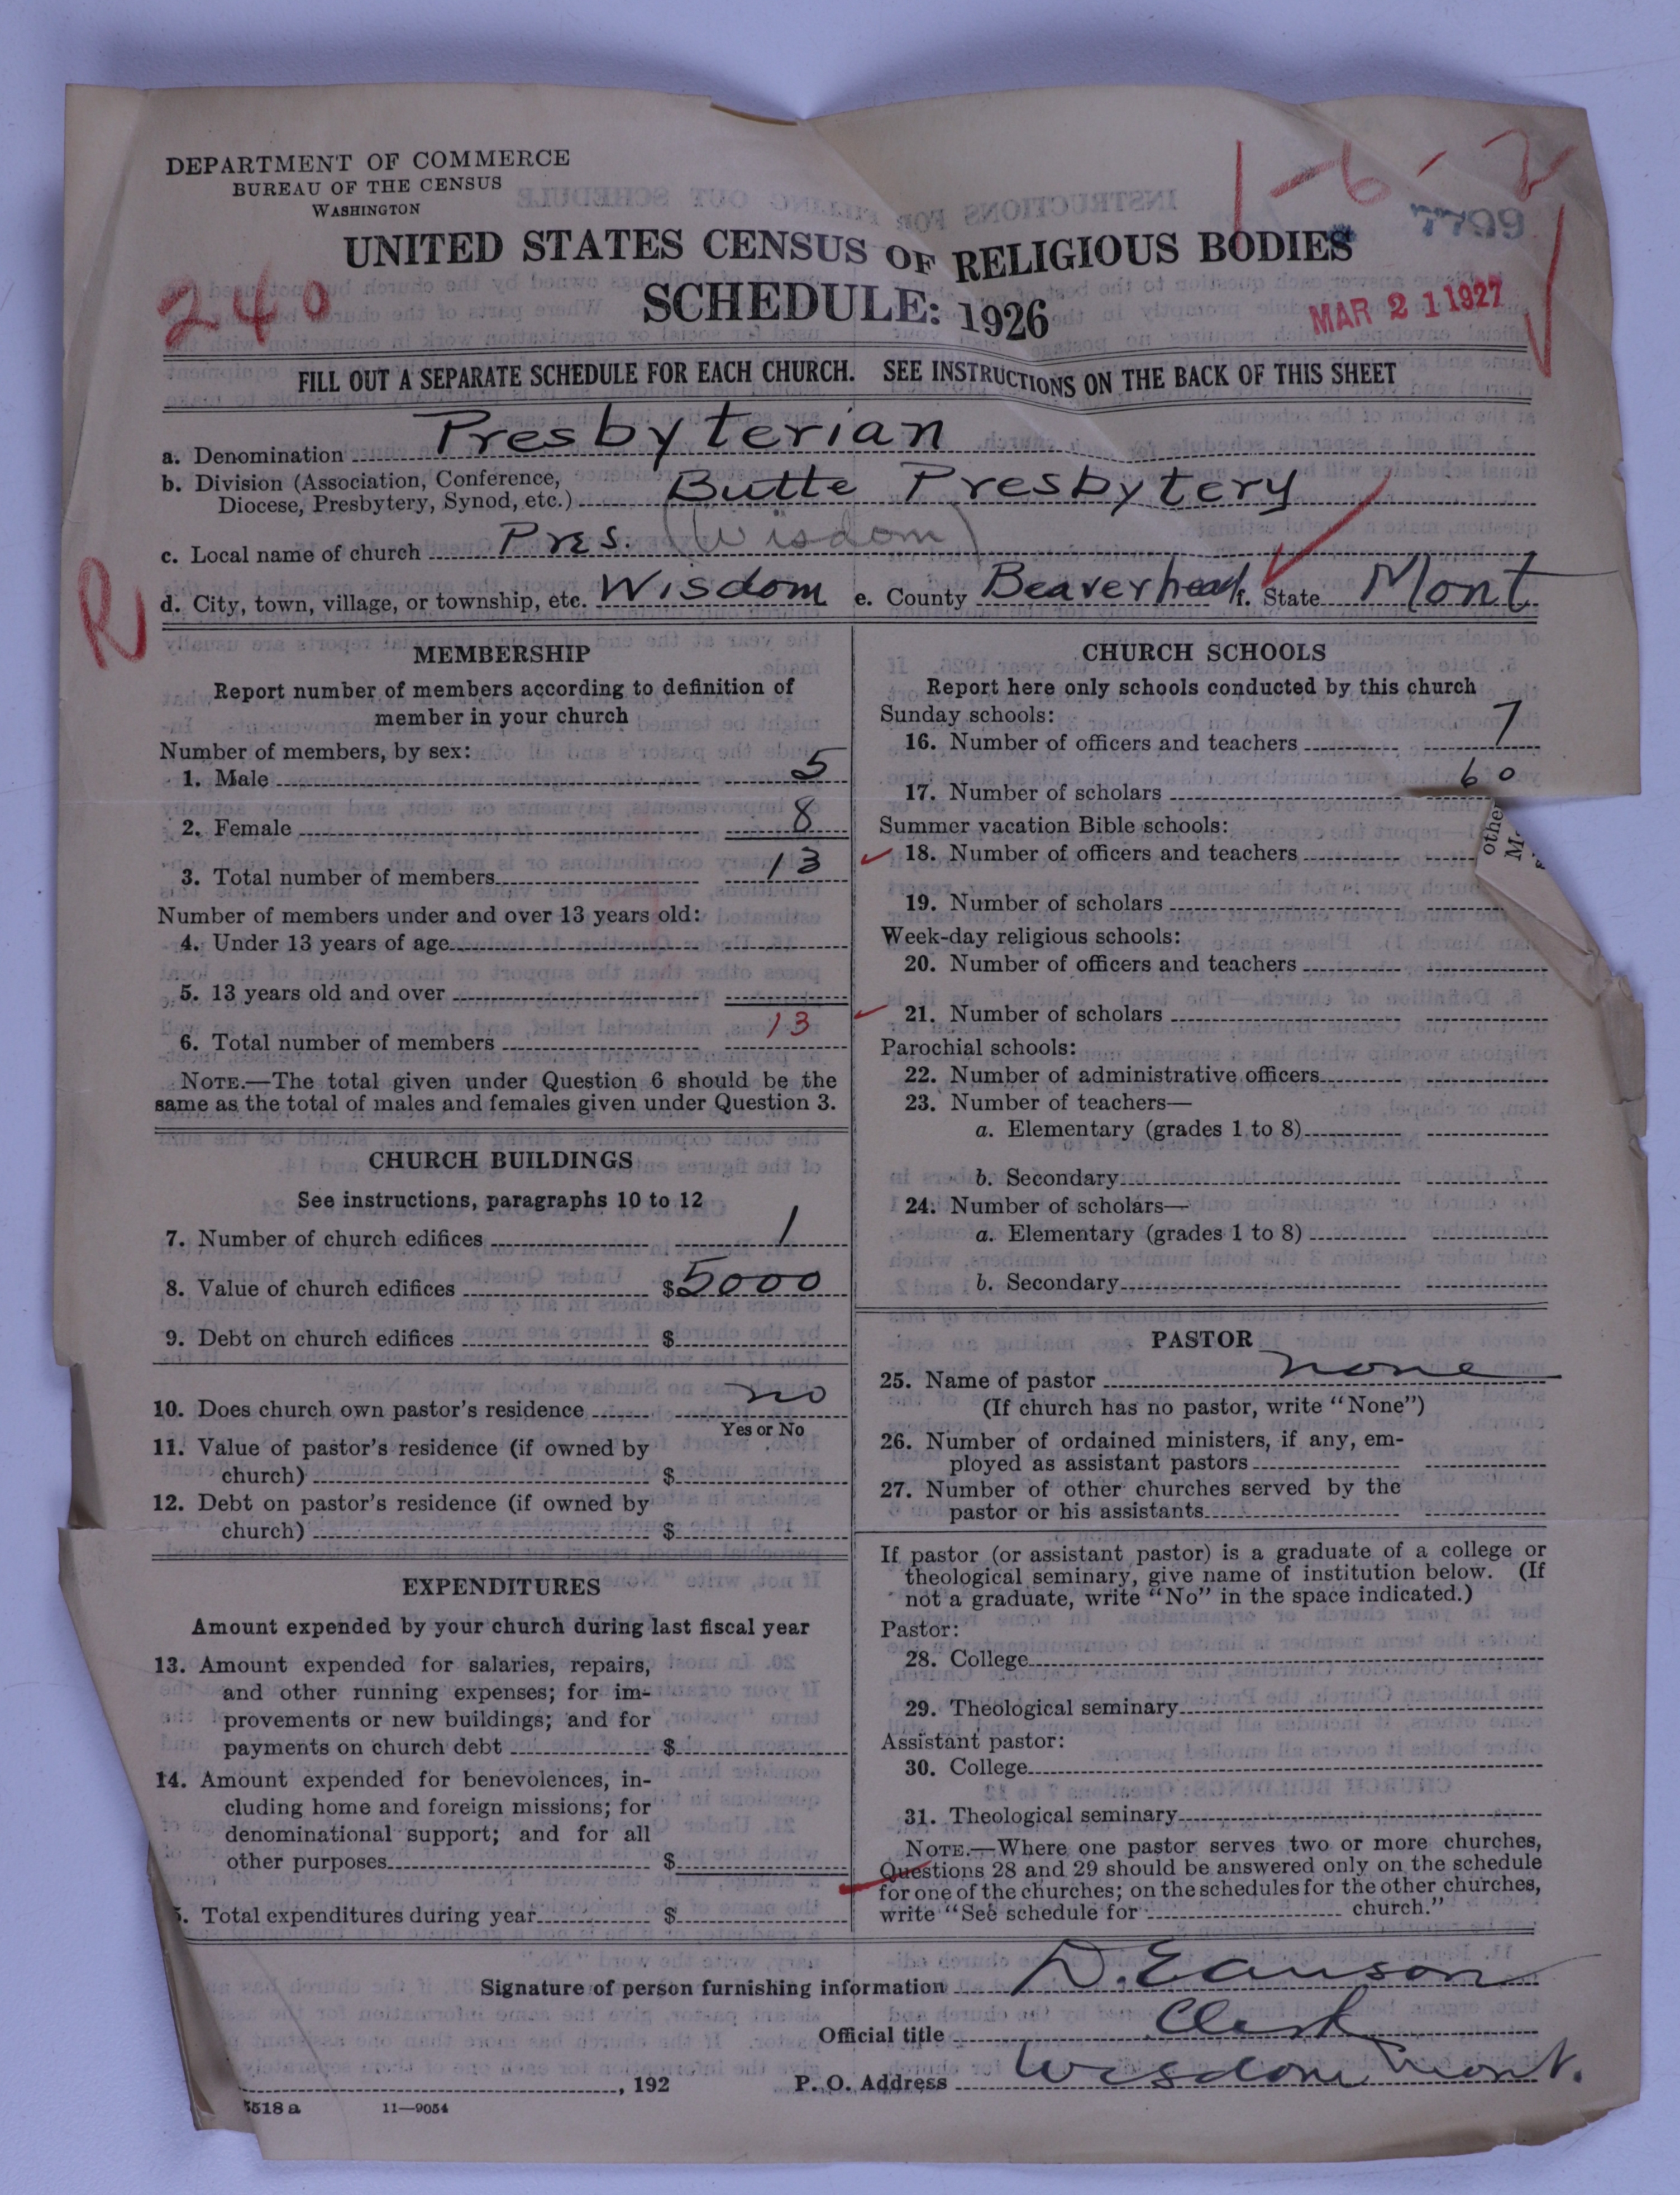 DEPARTMENT OF COMMERCE
BUREAU OF THE CENSUS
WASHINGTON
1-6-2
7799
UNITED STATES CENSUS OF RELIGIOUS BODIES
240
SCHEDULE: 1926
MAR 21 1927
FILL OUT A SEPARATE SCHEDULE FOR EACH CHURCH. SEE INSTRUCTIONS ON THE BACK OF THIS SHEET
a. Denomination Presbyterian
b. Division (Association, Conference,
Diocese, Presbytery, Synod, etc.) Butte Presbytery
c. Local name of church Pres. (Wisdom)
R
d. City, town, village, or township, etc. Wisdom e. County Beaverhead f. State Mont
MEMBERSHIP
Report number of members according to definition of
member in your church
Number of members, by sex:
1. Male 5
2. Female 8
3. Total number of members 13
Number of members under and over 13 years old:
4. Under 13 years of age
5. 13 years old and over
6. Total number of members 13
NOTE.—The total given under Question 6 should be the
same as the total of males and females given under Question 3.
CHURCH BUILDINGS
See instructions, paragraphs 10 to 12
7. Number of church edifices 1
8. Value of church edifices $5000
9. Debt on church edifices $
10. Does church own pastor's residence no
Yes or No
11. Value of pastor's residence (if owned by
church) $
12. Debt on pastor's residence (if owned by
church) $
EXPENDITURES
Amount expended by your church during last fiscal year
13. Amount expended for salaries, repairs,
and other running expenses; for im-
provements or new buildings; and for
payments on church debt $
14. Amount expended for benevolences, in-
cluding home and foreign missions; for
denominational support; and for all
other purposes $
5. Total expenditures during year $
CHURCH SCHOOLS
Report here only schools conducted by this church
Sunday schools:
16. Number of officers and teachers 7
17. Number of scholars 60
Summer vacation Bible schools:
18. Number of officers and teachers
19. Number of scholars
Week-day religious schools:
20. Number of officers and teachers
21. Number of scholars
Parochial schools:
22. Number of administrative officers
23. Number of teachers—
a. Elementary (grades 1 to 8)
b. Secondary
24. Number of scholars—
a. Elementary (grades 1 to 8)
b. Secondary
PASTOR
25. Name of pastor none
(If church has no pastor, write "None")
26. Number of ordained ministers, if any, em-
ployed as assistant pastors
27. Number of other churches served by the
pastor or his assistants
If pastor (or assistant pastor) is a graduate of a college or
theological seminary, give name of institution below. (If
not a graduate, write "No" in the space indicated.)
Pastor:
28. College
29. Theological seminary
Assistant pastor:
30. College
31. Theological seminary
NOTE.—Where one pastor serves two or more churches,
Questions 28 and 29 should be answered only on the schedule
for one of the churches; on the schedules for the other churches,
write "See schedule for church."
Signature of person furnishing information D.
Official title Clerk
, 192 P. O. Address Wisdom Mont.
5518 a 11—9054